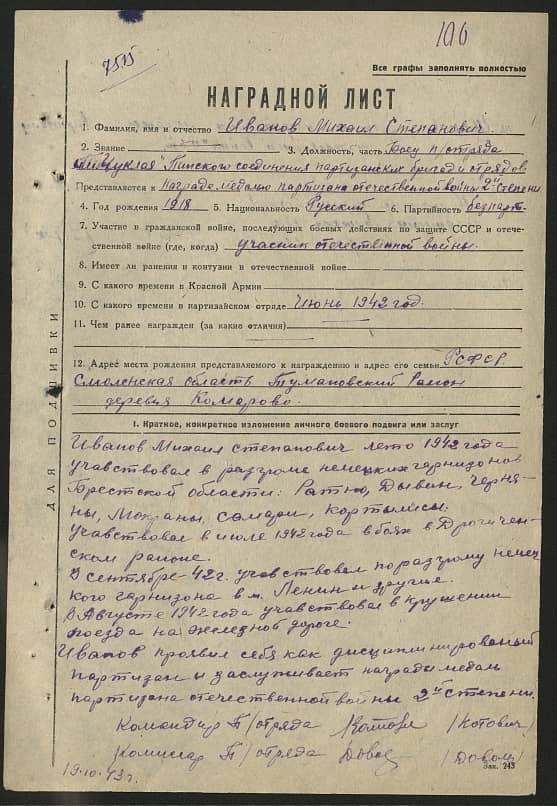 106
7515
Все графы заполнять полностью
НАГРАДНОЙ ЛИСТ
1. Фамилия, имя и отчество Иванов Михаил Степанович.
2. Звание 3. Должность, часть Боец п/отряда
Пинского соединения партизанских бригад и отрядов
Представляется к Награде медалью партизана отечественной войны 2ой степени
4. Год рождения 1918 5. Национальность Русский 6. Партийность безпарт.
7. Участие в гражданской войне, последующих боевых действиях по защите СССР и отече-
ственной войне (где, когда) участник отечественной войны.
8. Имеет ли ранения и контузии в отечественной войне
9. С какого времени в Красной Армии
10. С какого времени в партизайском отряде Июнь 1942 год.
11. Чем ранее награжден (за какие отличия)
12. Адрес места рождения представляемого к награждению и адрес его семьи РСФСР
Смоленская область Тумановский Район
деревня Комарово.
ДЛЯ ПОДШИВКИ
I. Краткое, конкретное изложение личного боевого подвига или заслуг
Иванов Михаил степанович лето 1942 года
учавствовал в разгроме немецких гарнизонов
Брестской области: Ратно, Дывин, Черня-
ны, Мокраны, самари, кортылисы.
учавствовал в июле 1942 года в боях в Дрогичен-
ском районе.
В сентябре 42 г. учавствовал по разгрому немец
кого гарнизона в м. Ленин и другие.
В Августе 1942 года учавствовал в крушении
поезда на железной дороге.
Иванов проявил себя как дисциплинированый
партизан и заслуживает награди медаль
партизана отечественной войны 2ой степени.
Командир П/отряда /Котович/
Комиссар П/отряда
19.10.43г.
Зак. 243